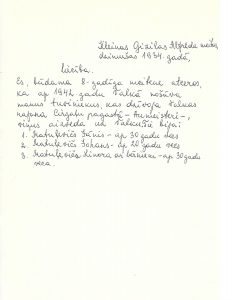 Kleinas Gizilas Alfreda meitas
dzimušas 1934. gadā,
liecība.
Es, būdama 8-gadīga meitene atceros,
ka ap 1942. gadu Valkā nošāva
manus tuviniekus, kas dzīvoja Valkas
rajona, Cirgaļu pagastā
viņus aizveda uz
1. Matulevičs Jānis - ap 30 gadu vecs
2. Matulevičs Johans - ap 20 gadu vecs
3. Matulevičs Linora ar bērnu - ap 30 gadu
veca.